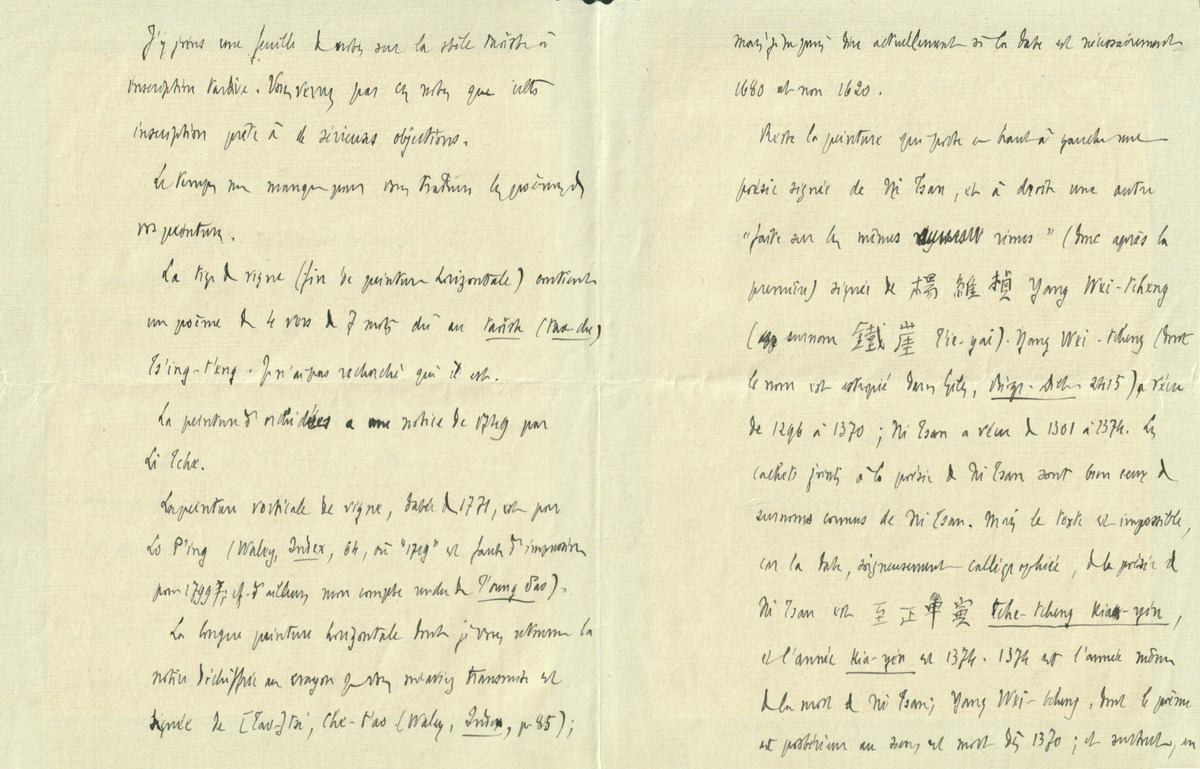 J'y joins une feuille de notes sur la stèle taoïste à
inscription tardive. Vous verrez par ces notes que cette
inscription prête à de sérieuses objections.
Le temps me manque pour vous traduire les poèmes de
vos peintures.
La tige de vigne (fin de peinture horizontale) contient
un poème de 4 vers de 7 mots dû au taoïste (tao-che)
Ts'ing-t'eng. Je n'ai pas recherché qui il est.
La peinture d'orchidées a une notice de 1749 par
Li Che.
La peinture verticale de vigne, datée de 1771, est par
Lo P'ing (Waley, Index, 64, où "1719" est faute d'impression
pour 1799; cf. d'ailleurs mon compte rendu de T'oung Pao).
La longue peinture horizontale dont je vous retourne la
notice déchiffrée au crayon que vous m'aviez transmise est
signée de [Tao-]tsi, Che-t'ao (Waley, Index, p. 85);
mais je ne puis dire actuellement si la date est nécessairement
1680 et non 1620.
Reste la peinture qui porte en haut à gauche une
poésie signée de Ni Tsan, et à droite une autre
"faite sur les mêmes rimes" (donc après la
première) signée de 楊維楨 Yang Wei-tcheng
(surnom 鐵崖 T'ie-yai). Yang Wei-tcheng (dont
le nom est estropié dans Giles, Biogr. Dict. 2415) a vécu
de 1296 à 1370; Ni Tsan a vécu de 1301 à 1374. Les
cachets joints à la poésie de Ni Tsan sont bien ceux de
surnoms connus de Ni Tsan. Mais le texte est impossible,
car la date, soigneusement calligraphiée, de la poésie de
Ni Tsan est 至正甲寅 tche-tcheng kia-yin,
et l'année kia-yin est 1374. 1374 est l'année même
de la mort de Ni Tsan; Yang Wei-tcheng, dont le poème
est postérieur au sien, est mort dès 1370; et surtout, en